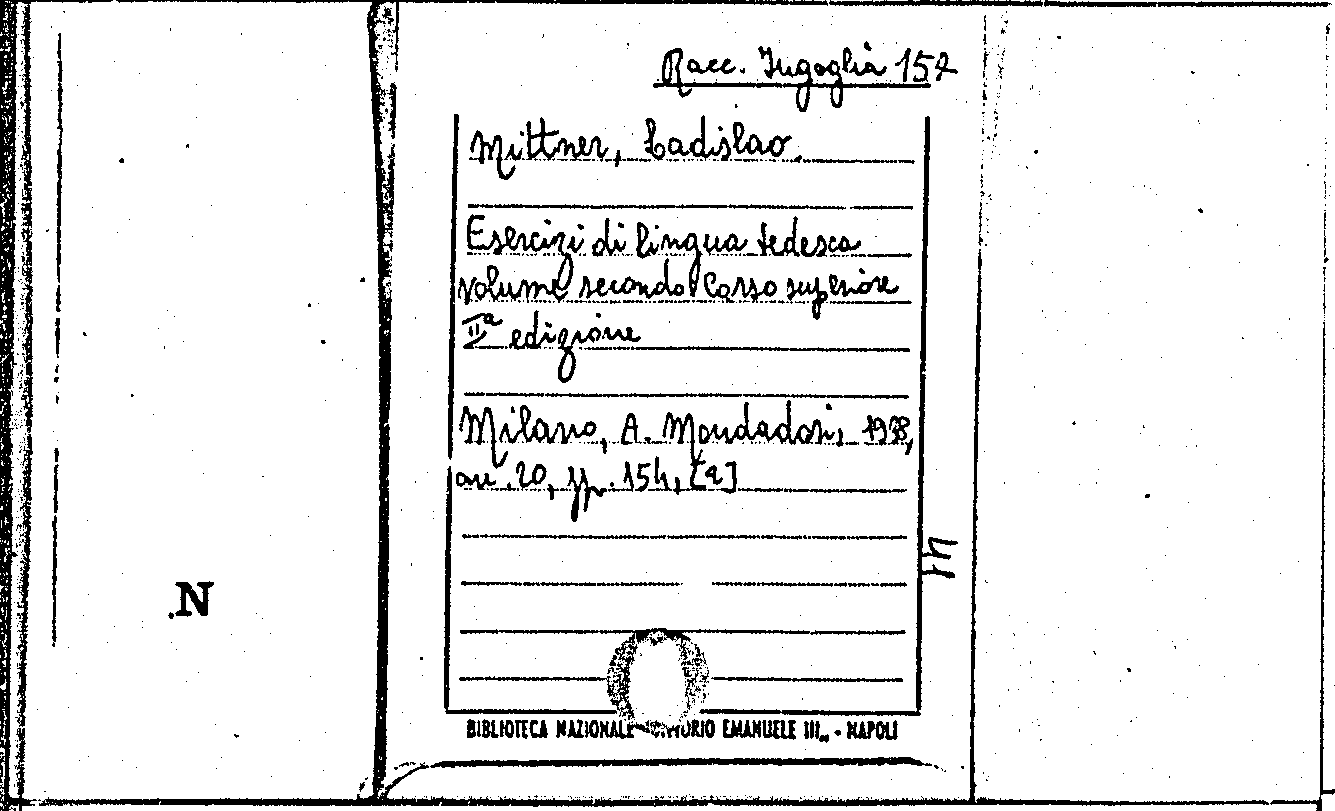 Racc. Jugoglia 152
Mittner, Ladislao.
Esercizi di lingua tedesca
volume secondo: Corso superiore
IIª edizione
Milano, A. Mondadori, 1938,
au. 20, pp. 154, [2]
N
BIBLIOTECA NAZIONALE "VITTORIO EMANUELE III„ - NAPOLI